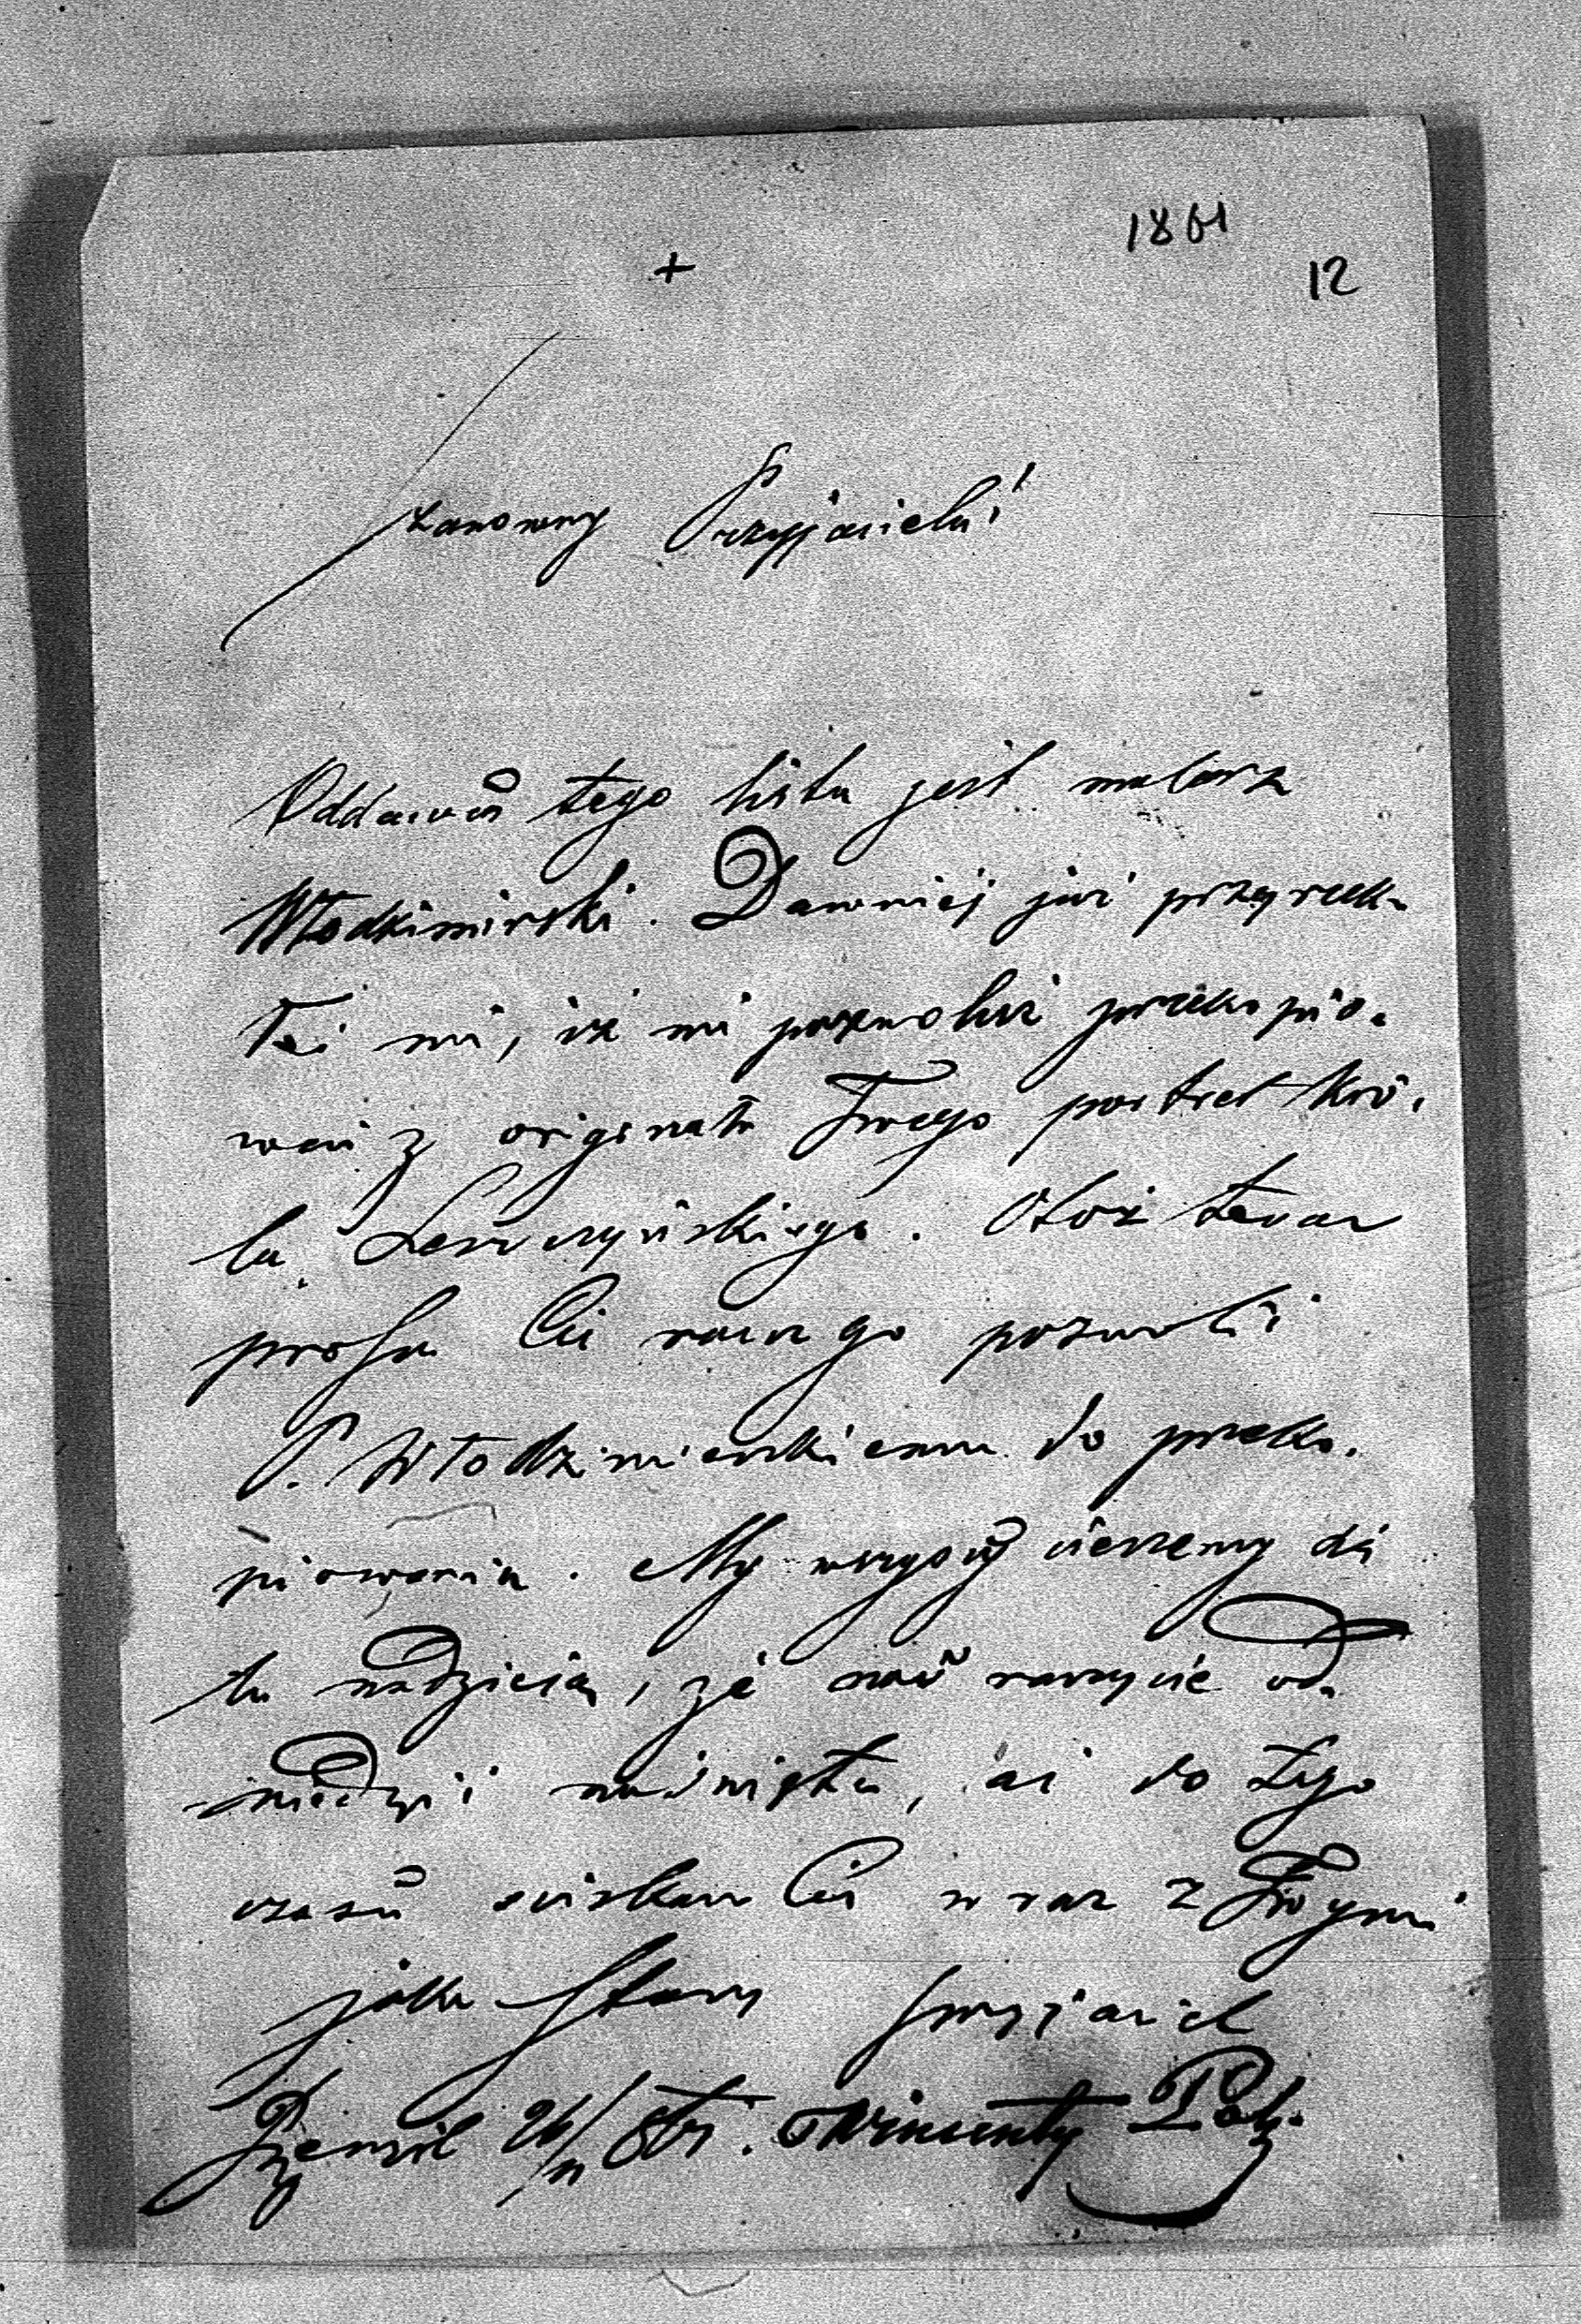 1861
12
+
Szanowny Przyjacielu!
Oddawcą tego listu jest malarz
Włodzimirski. Dawniej już przyrzek-
łeś mi, iż mi pozwolisz przekopio-
wać z originału Twego portret kró-
la Leszczyńskiego. Otóż teraz
proszę Cię racz go pozwolić
P. Włodzimierskiemu do przeko-
piowania. My wszyscy cieszemy się
tu nadzieią, że nas raczycie od-
wiedzić na święta, aż do tego
czasu ściskam Cię wraz z Twymi
jako stary przyjaciel
26/11 861. Wincenty Pol